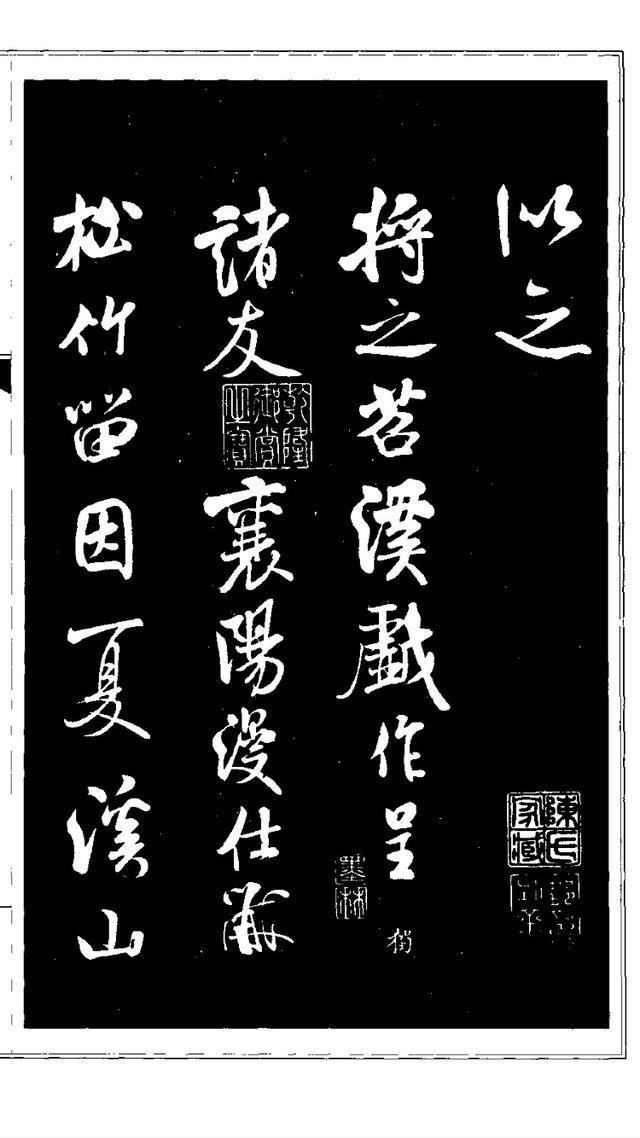 以之
將之苕溪戲作呈
墨林
諸友
乾隆御賞之寶
襄陽漫仕黻
松竹留因夏溪山